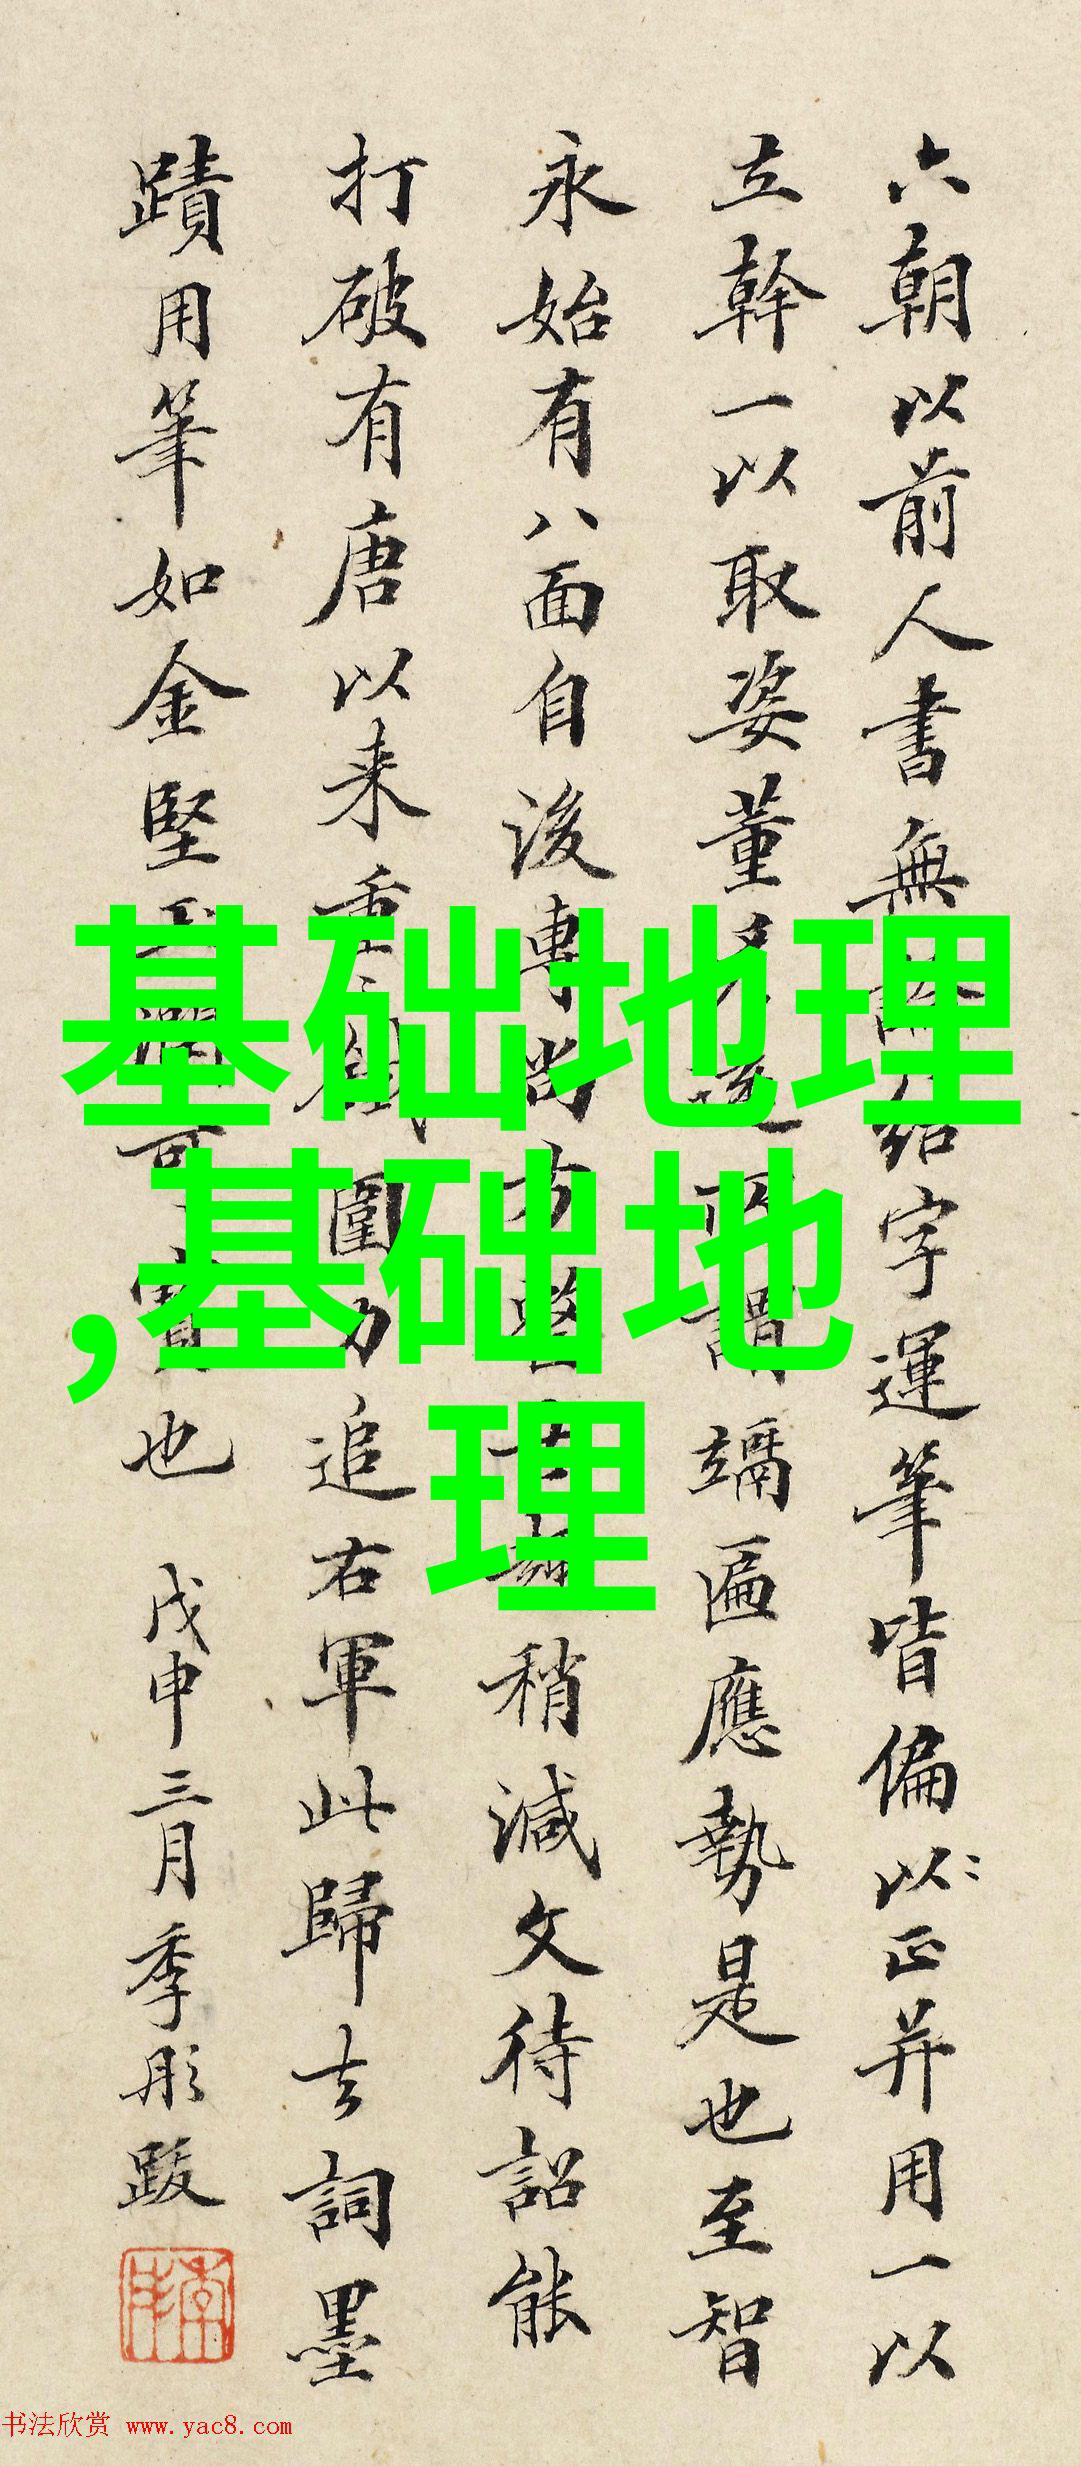 六朝以前人書無字運筆皆偏以正并用一以
立幹一以取姿董謂竵匾應勢是也至智
永始有八面自後專尚方整稍減文待詔能
打破有唐以来重圍力追右軍此歸去詞墨
蹟用筆如金堅玉潤可寶也 戊申三月季彤跋
基础地理
,基础地
理
书法欣赏 www.yac8.com